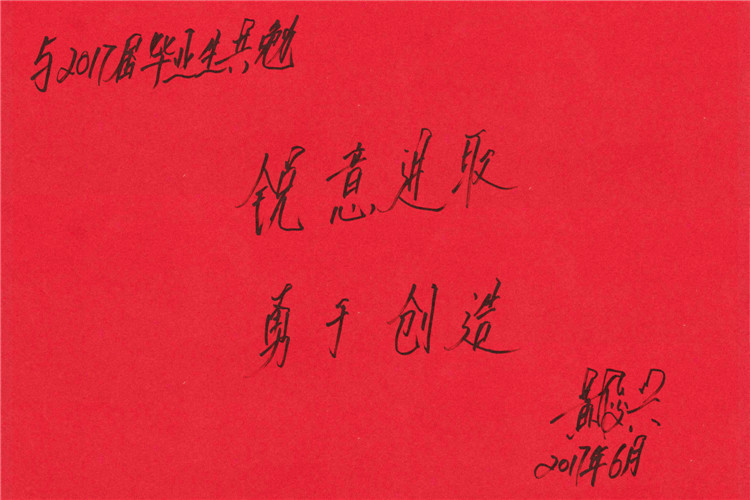 与2017届毕业生共勉
锐意进取
勇于创造
2017年6月